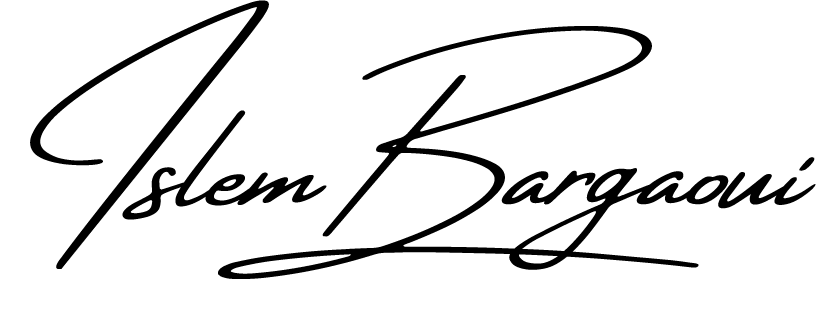 Islem Bargaoui